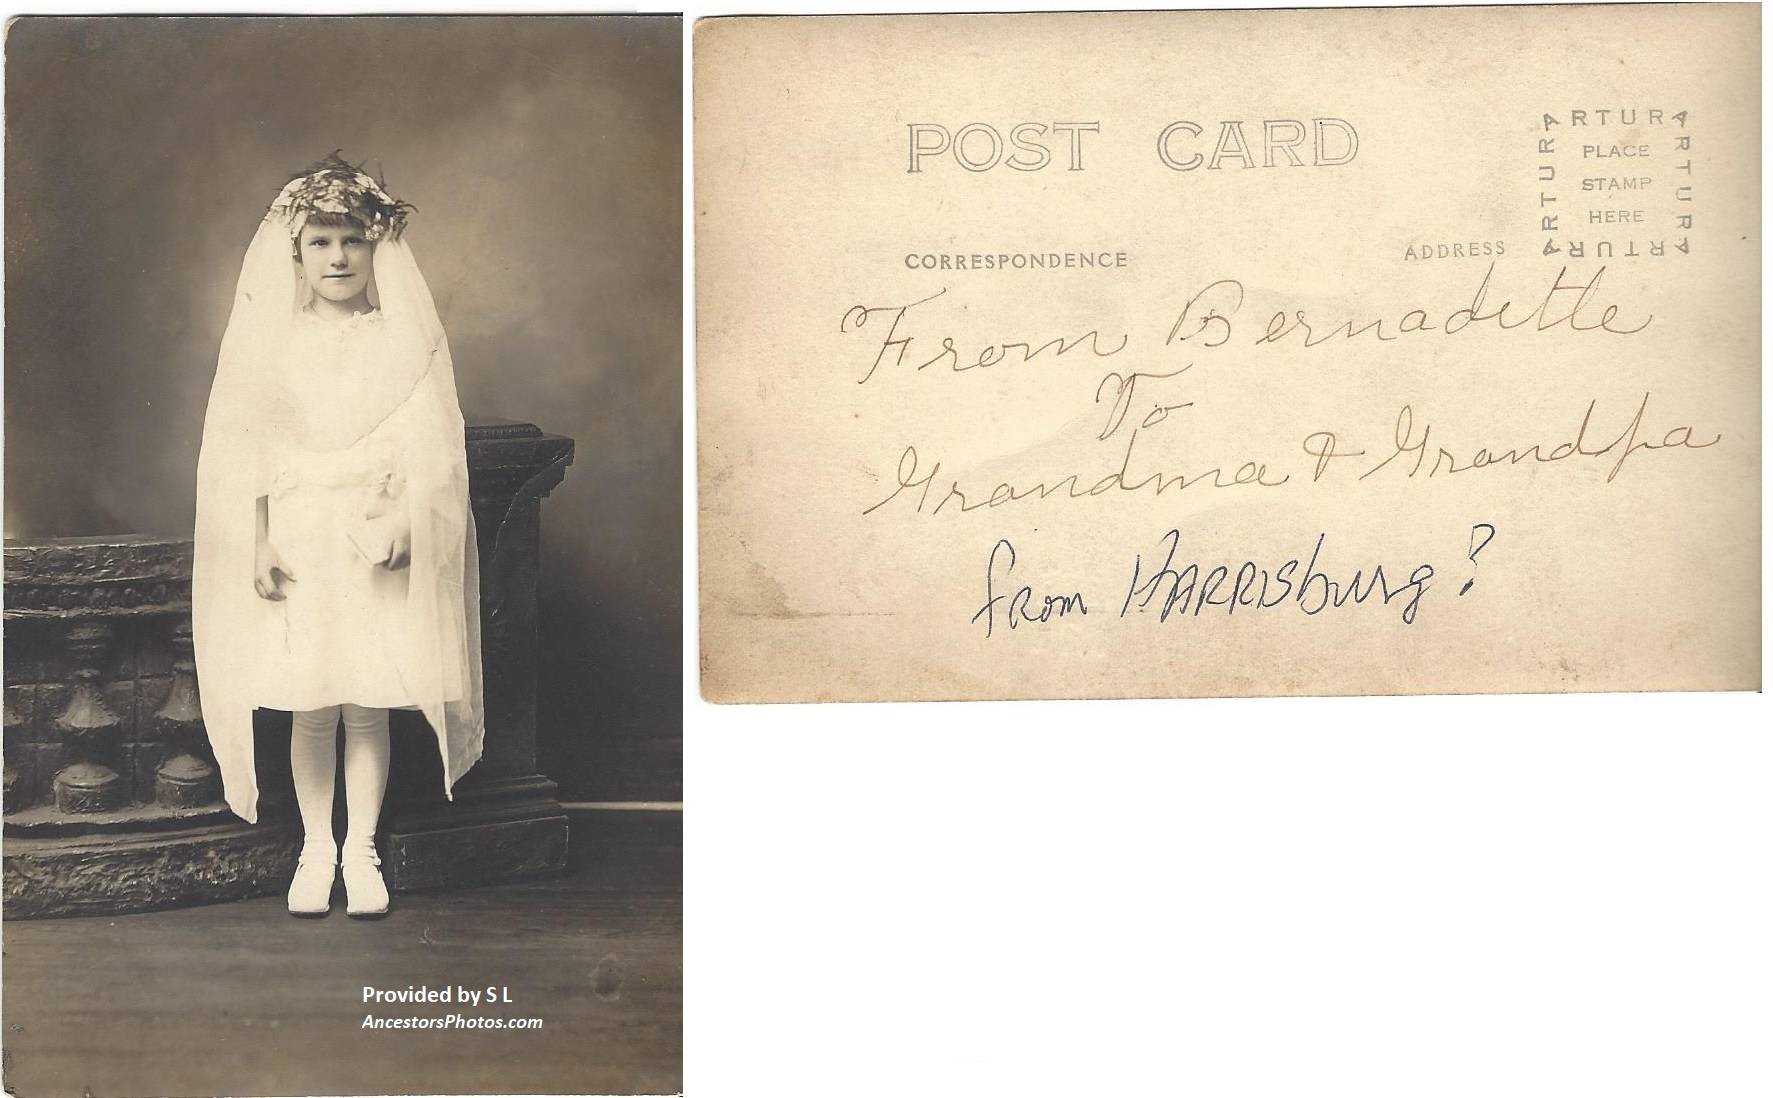 Provided by S L
AncestorsPhotos.com
POST CARD
ARTURA
ARTURA
ARTURA
ARTURA
PLACE
STAMP
HERE
CORRESPONDENCE
ADDRESS
From Bernadette
To
Grandma & Grandpa
from HARRISburg?